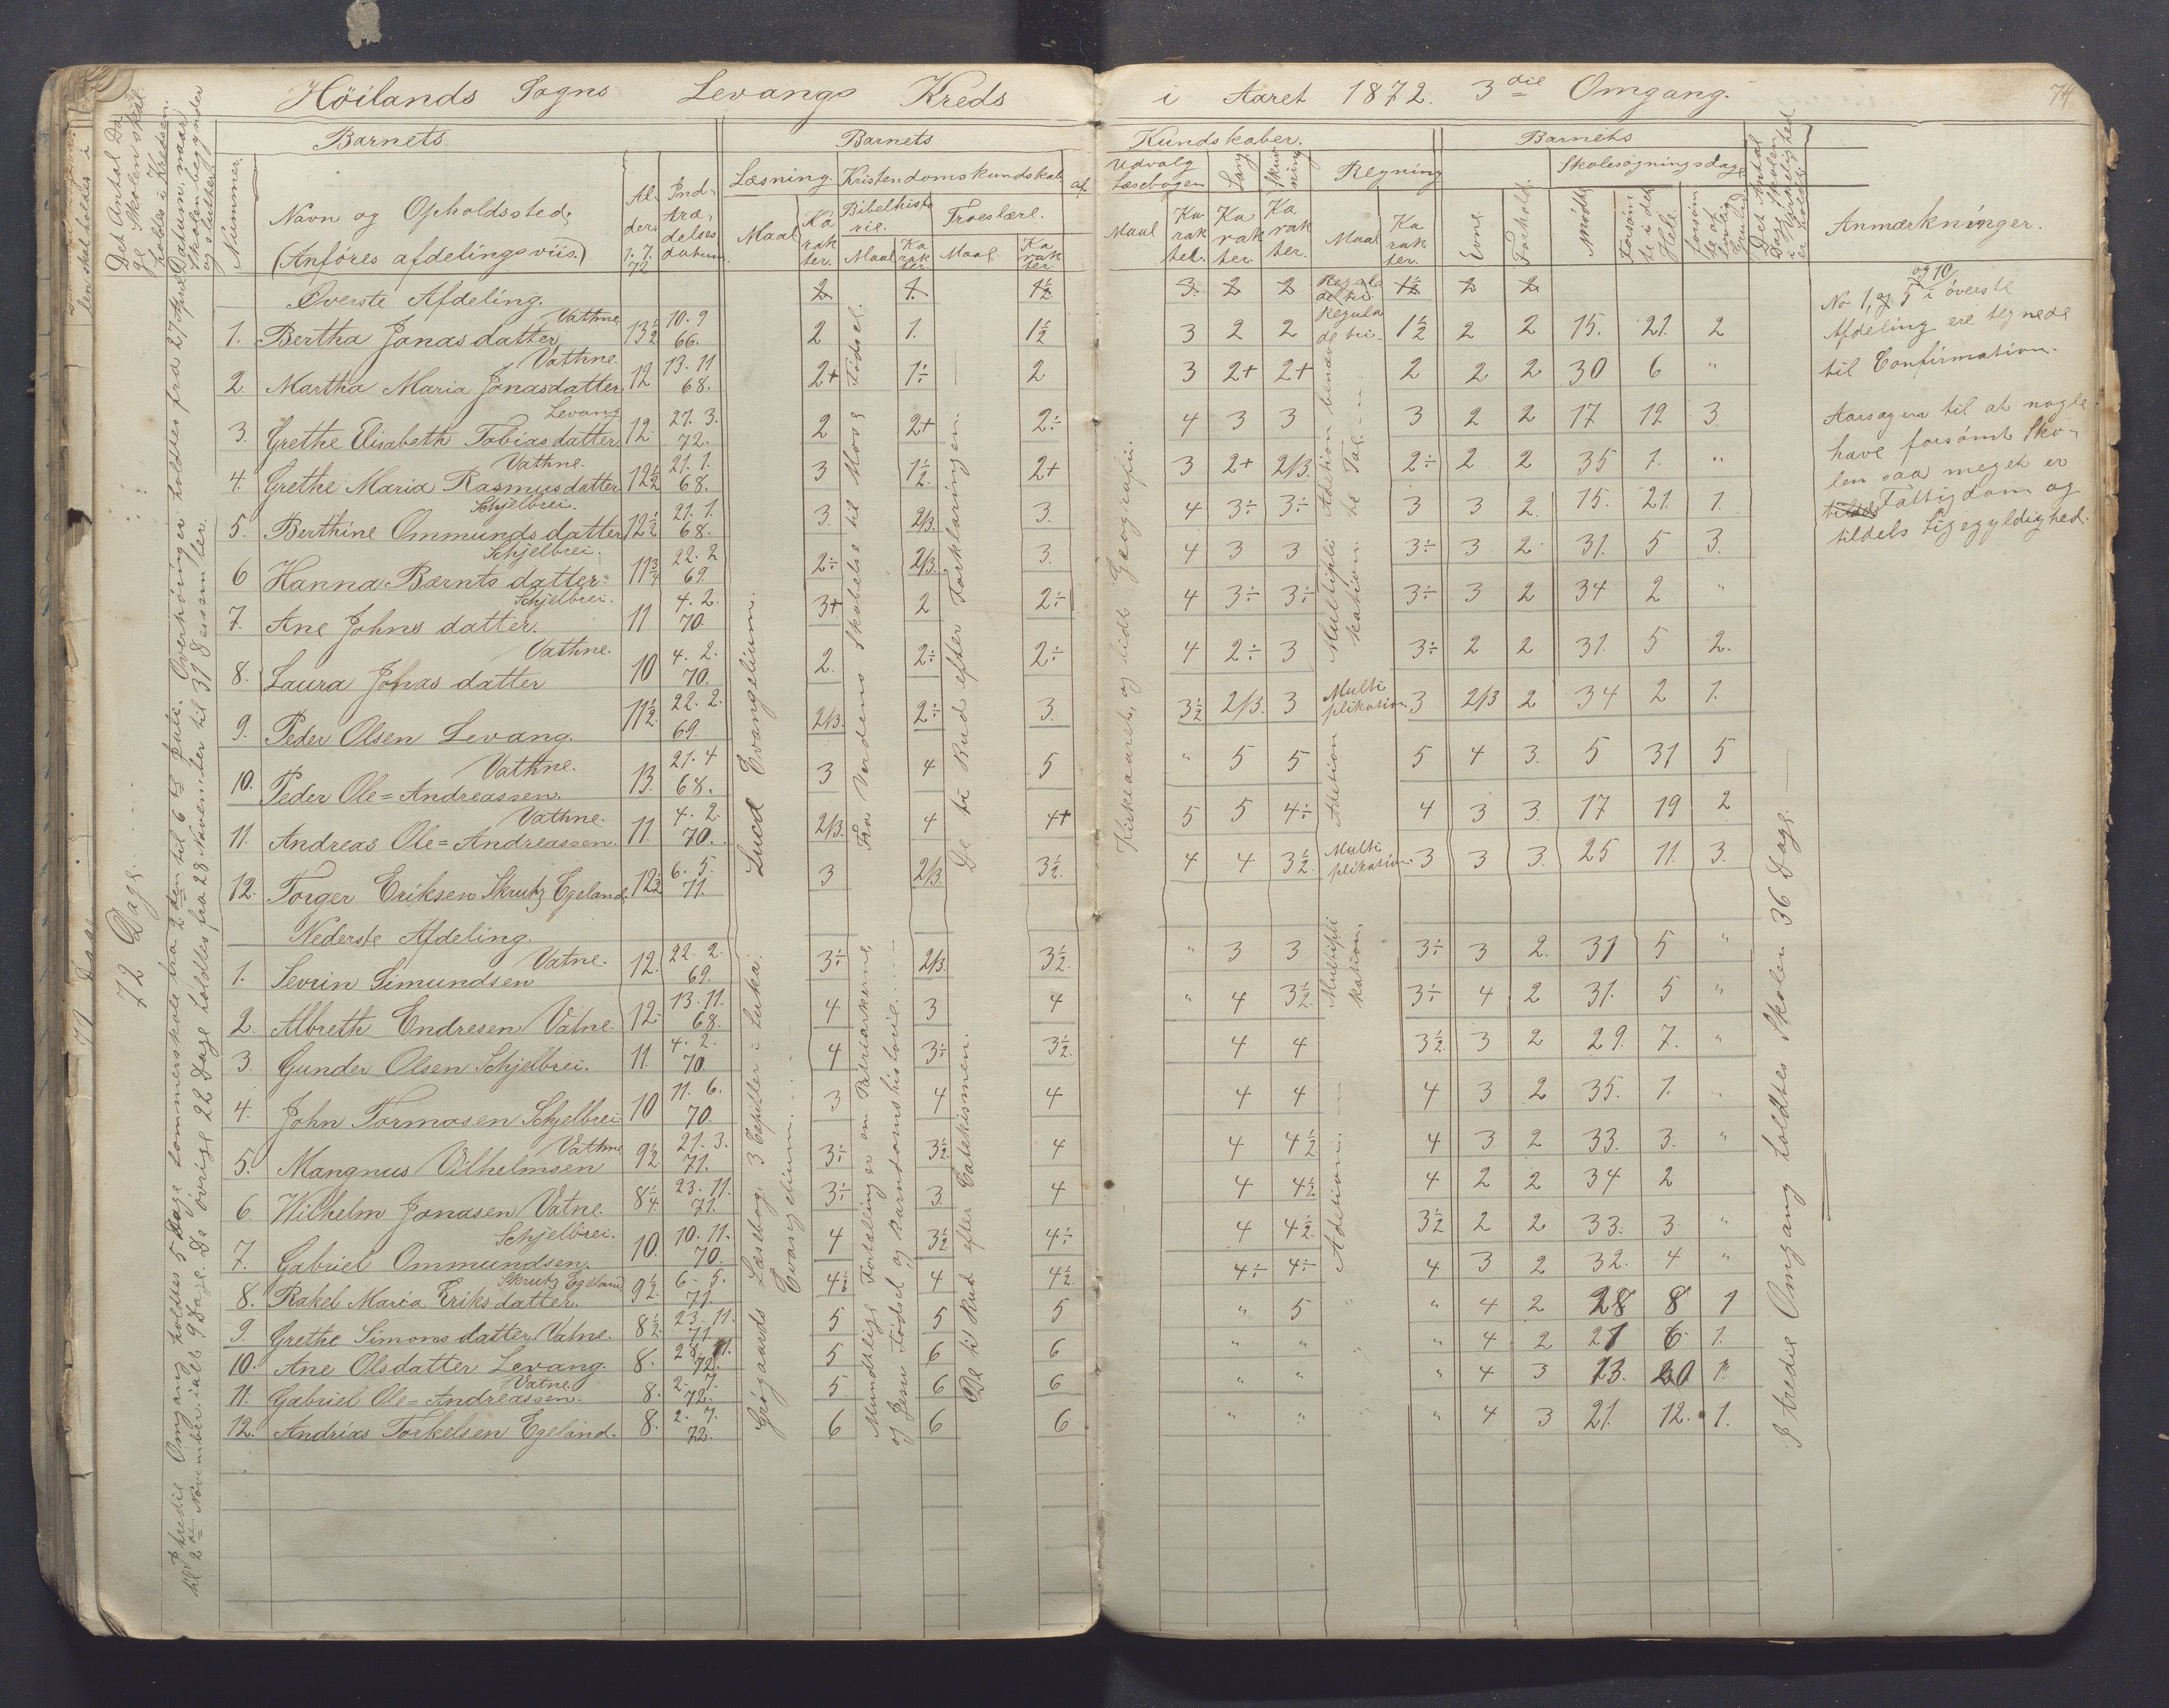 Höilands Sogns Levangs Kreds i Aaret 1872. 3die Omgang. 74
Det Antal Dage Skolen skal holdes i Kredsen.
72 Dage
Datum, naar Skolen begynder og slutter.
I tredie Omgang holdtes 5 Dage Sommerskole fra 2den til 6te Juli. Overhöringer holdtes fra 27 April
til 2de November ialt 9 Dage. De øvrige 22 Dage holdtes fra 28 November til 31 Desember.
Barnets
Nummer.
Navn og Opholdssted,
(Anföres afdelingsviis.)
Alder 1.7.72
Indtrædelsesdatum.
Barnets
Læsning. Kristendomskundskab
Maal Karakter.
Bibelhistorie. Troeslære.
Maal Karakter. Maal Karakter.
Kundskaber.
Udvalg af Læsebogen Sang Skrivning Regning
Maal Karakter. Karakter. Karakter. Maal Karakter.
Barnets
Evne. Forhold.
Skolesøgningsdage
Mödte Forsömte i det Hele. forsömte af lovlig Grund
Det Antal Dage Skolen i Virkelighed er holdt
Anmærkninger.
Øverste Afdeling. 2 1. 1½ 3 2 2 Regula de tri. 1½ 2 2
1. Bertha Jonasdatter Vathne 13½ 10. 9 66. 2 1. 1½ 3 2 2 Regula de tri. 1½ 2 2 15. 21. 2
2. Martha Maria Jonasdatter Vathne. 12 13. 11 68. 2+ 1÷ 2 3 2+ 2+ 2 2 2 30 6 "
3. Grethe Elisabeth Tobiasdatter. Levang 12 27. 3. 72. 2 2+ 2÷ 4 3 3 3 2 2 17 19 3.
4. Grethe Maria Rasmusdatter Vathne. 12½ 21. 1. 68. 3 1½. 2+ 3 2+ 2/3. 2÷ 2 2 35 1. "
5. Berthine Ommundsdatter Schjelbrei. 12½ 21. 1. 68. 3. 2/3 3. 4 3÷ 3÷ 3 3 2 15. 21. 1.
6 Hanna Bærntsdatter. Schjelbrei. 11¾ 22. 2 69. 2÷ 2/3. 3. 4 3 3 3÷ 3 2 31. 5 3.
7. Ane Johns datter. Schjelbrei. 11 4. 2. 70. 3+ 2 2÷ 4 3÷ 3÷ 3÷ 3 2 34 2 "
8. Laura Johas datter Vathne. 10 4. 2. 70. 2. 2÷ 2÷ 4 2÷ 3 3÷ 2 2 31. 5 2.
9. Peder Olsen Levang. 11½ 22. 2. 69. 2/3. 2÷ 3. 3½ 2/3. 3 Multiplikation 3 2/3 2 34 2 1.
10. Peder Ole=Andreassen. Vathne. 13. 21. 4 68. 3 4 5 " 5 5 Adetion 5 4 3. 5 31 5
11. Andreas Ole=Andreassen. Vathne. 11. 4. 2. 70. 2/3. 4 4+ 5 5 4÷ 4 3 3. 17 19 2
12. Torger Eriksen Skrutz Egeland. 12½ 6. 5. 71. 3 2/3. 3½. 4 4 3½. Multiplikation. 3 3 3. 25 11. 3.
Nederste Afdeling.
1. Sevrin Simundsen Vatne. 12. 22. 2. 69. 3÷ 2/3. 3½. " 3 3 3÷ 3 2. 31 5 "
2. Albreth Endresen Vatne. 12. 13. 11. 68. 4 3 4 " 4 3½. 3÷ 4 2 31. 5 "
3. Gunder Olsen Schjelbrei. 11. 4. 2. 70. 4 3÷ 3½. 4 4 3½. 3 2 29. 7. "
4. John Tormosen Schjelbrei 10 11. 6. 70. 3 4 4 4 4 4 3 2 35. 1. "
5. Mangnus Vilhelmsen Vathne 9½ 21. 3. 71. 3÷ 3½. 4 4 4½ 4 3 2 33. 3. "
6. Wilhelm Jonasen Vatne. 8¼. 23. 11. 71. 3÷ 3 4 4 4½ 4 2 2 34 2
7. Gabriel Ommundsen. Schjelbrei. 10. 10. 11. 70. 4 3½. 4÷ 4 4½. 3½ 2 2 33. 3 "
8. Rakel Maria Eriksdatter. Skrutz Egeland 9½ 6. 5. 71 4½ 4 4½. 4÷ 4÷ 4 3 2 32. 4. "
9. Grethe Simonsdatter Vatne. 8½. 23. 11. 71. 5 5 5 " 5 " 4 2 28 8 1
10. Ane Olsdatter Levang. 8. 28. 11. 72. 5 6 6 " " " 4 2 21 6 1.
11. Gabriel Ole=Andreassen. Vatne. 8. 2. 7. 72. 5 6 6 " " " 4 3 13. 20 1.
12. Andrias Torkelsen Egeland. 8. 2. 7. 72. 6 6 6 " " " 4 3 21. 12. 1.
Lucæ Evangelium.
Fra Verdens Skabelse til Mose Födsel.
De ti Bud efter Forklaringen.
Grøgaards Læsebog, 3 Capitler i Lukai Evangelium.
Mundtlige Fortælling er om Patriarkerne, og Jesu Födsel og Barndoms historie.
De ti Bud efter Catekismen.
Kirkeaaret, og lidt Geografii.
Adetion benævnte Tal.
Multiplikation.
Multiplikation.
Adetion
I tredie Omgang holdtes Skolen 36 Dage.
No 1, og 5 og 10 i överste
Afdeling ere tegnede
til Confirmation.
Aarsagen til at nogle
have forsömt Skolen
saa meget er
tildels Fattigdom og
tildels Ligegyldighed.